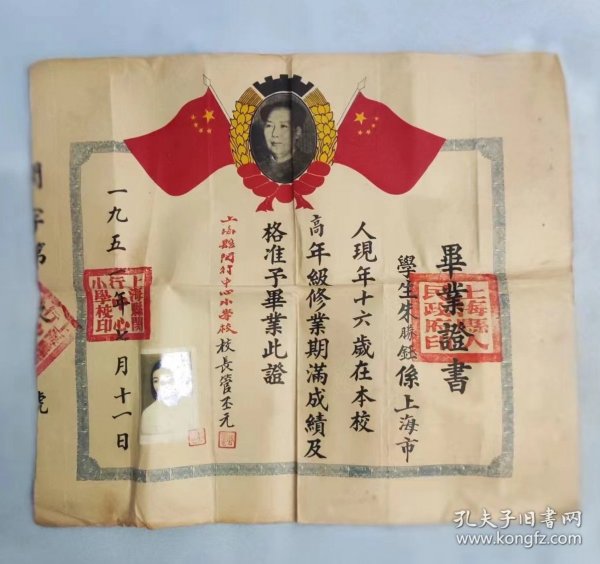 畢業證書
學生朱勝鈺係上海市
人現年十六歲在本校
高年級修業期滿成績及
格准予畢業此證
上海縣閔行中心小學校 校長管丕元
一九五一年七月十一日
上海縣人
民政府印
上海縣閔
行中心
小學校印
字第
號
孔夫子旧书网
www.kongfz.com